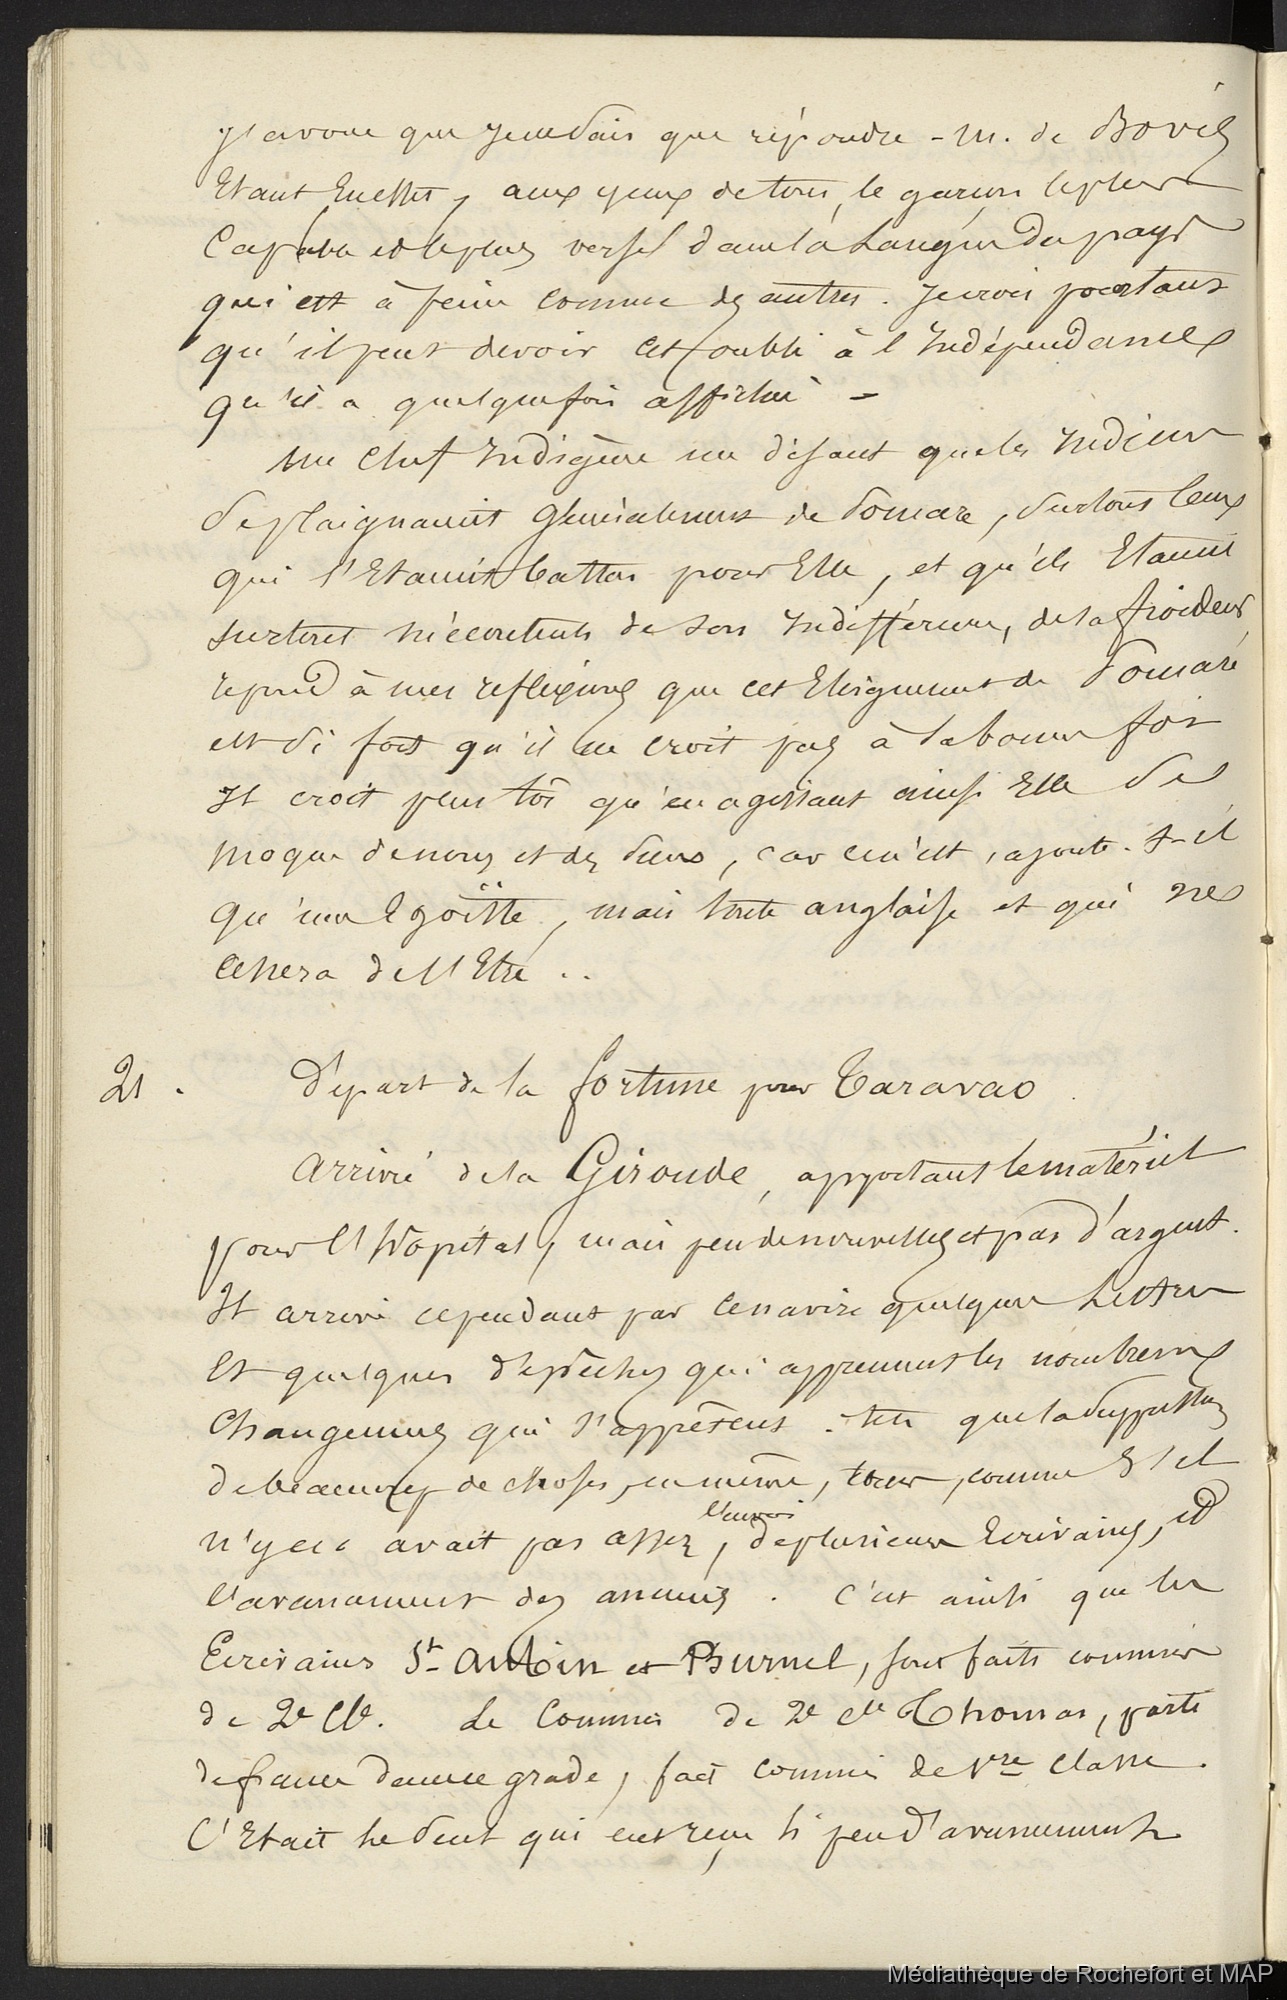 J'avoue que je ne sais que répondre - M. de Bovis
Etant En effet, aux yeux de tous, le garçon le plus
Capable et le plus versé dans la Langue du pays
qui est à peine comme des autres. Je crois pourtant
qu'il peut devoir cet oubli à l'Indépendance
qu'il a quelquefois affiché -
Un Chef Indigène me disant que les Indiens
se plaignaient Généralement de Pomare, surtout Ceux
qui s'Etaient battus pour Elle, et qu'ils Etaient
surtout mécontents de son Indifférence, de sa froideur
répond à mes reflexions que cet Eloignement de Pomaré
est si fort qu'il ne croit pas à sa bonne foi
Il croit plutôt qu'en agissant ainsi Elle se
moque de nous et des siens, car ce n'est, ajoute-t-il
qu'une Egoïste, mais toute anglaise et qui ne
cessera de l'Etre ..
21. Départ de la fortune pour Taravao
Arrivé de la Gironde, apportant le matériel
pour l'Hôpital, mais peu de nouvelles et pas d'argent.
Il arrive cependant par ce navire quelques Lettres
Et quelques dépêches qui apprennent les nombreux
Changemens qui s'apprêtent. tels que la suppression
de beaucoup de choses, en même, tems, comme s'il
n'y en avait pas assez, l'envoi de plusieurs Ecrivains, et
l'avancement des anciens. C'est ainsi que les
Ecrivains St- Aubin et Burnel, sont faits commis
de 2e Cle. Le Commis de 2e cle Thomas, parti
de france dans ce grade, fait commis de 1re classe.
C'Etait le seul qui eut reçu si peu d'avancement